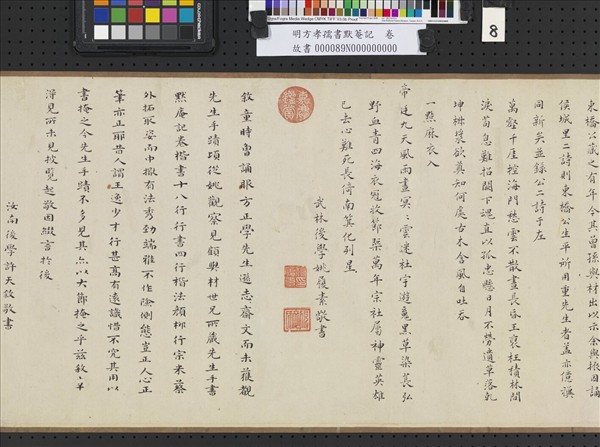 明方孝孺書默菴記 卷
故書 000089N000000000
8
東橋公藏之有年今其曾孫與材出以示余與掀因誦
侯城里二詩則東橋公生平所用重先生者蓋亦億禩
同新矣並錄公二詩于左
萬壑千厓控海門愁雲不散晝長昏王裒枉積林間
淚荀息難招闕下魂直以孤忠懸日月不勞遺草落乾
坤椒漿欲奠知何處古木含風自吐吞
一點麻衣入
帝廷九天風雨晝冥冥雲迷社宇遊魂黑草染萇弘
野血青四海衣冠收節槩萬年宗社屬神靈英雄
已去心難死長倚南箕化列星
武林後學姚履素敬書
敘童時曾誦眼方正學先生遜志齋文而未獲觀
先生手蹟頃從姚觀察見顧與材世兄所藏先生手書
默庵記卷楷書十八行行書四行楷法顏柳行宗米蔡
外拓取姿而中擫有法秀勁端雅不作險側態豈正人心正
筆亦正耶昔人謂王逸少才行甚高有遠識惜不究其用以
書掩之今先生手蹟不多見其亦以大節掩之乎茲敘
得見所未見披覽起敬因綴言於後
汝南後學許天敘敬書